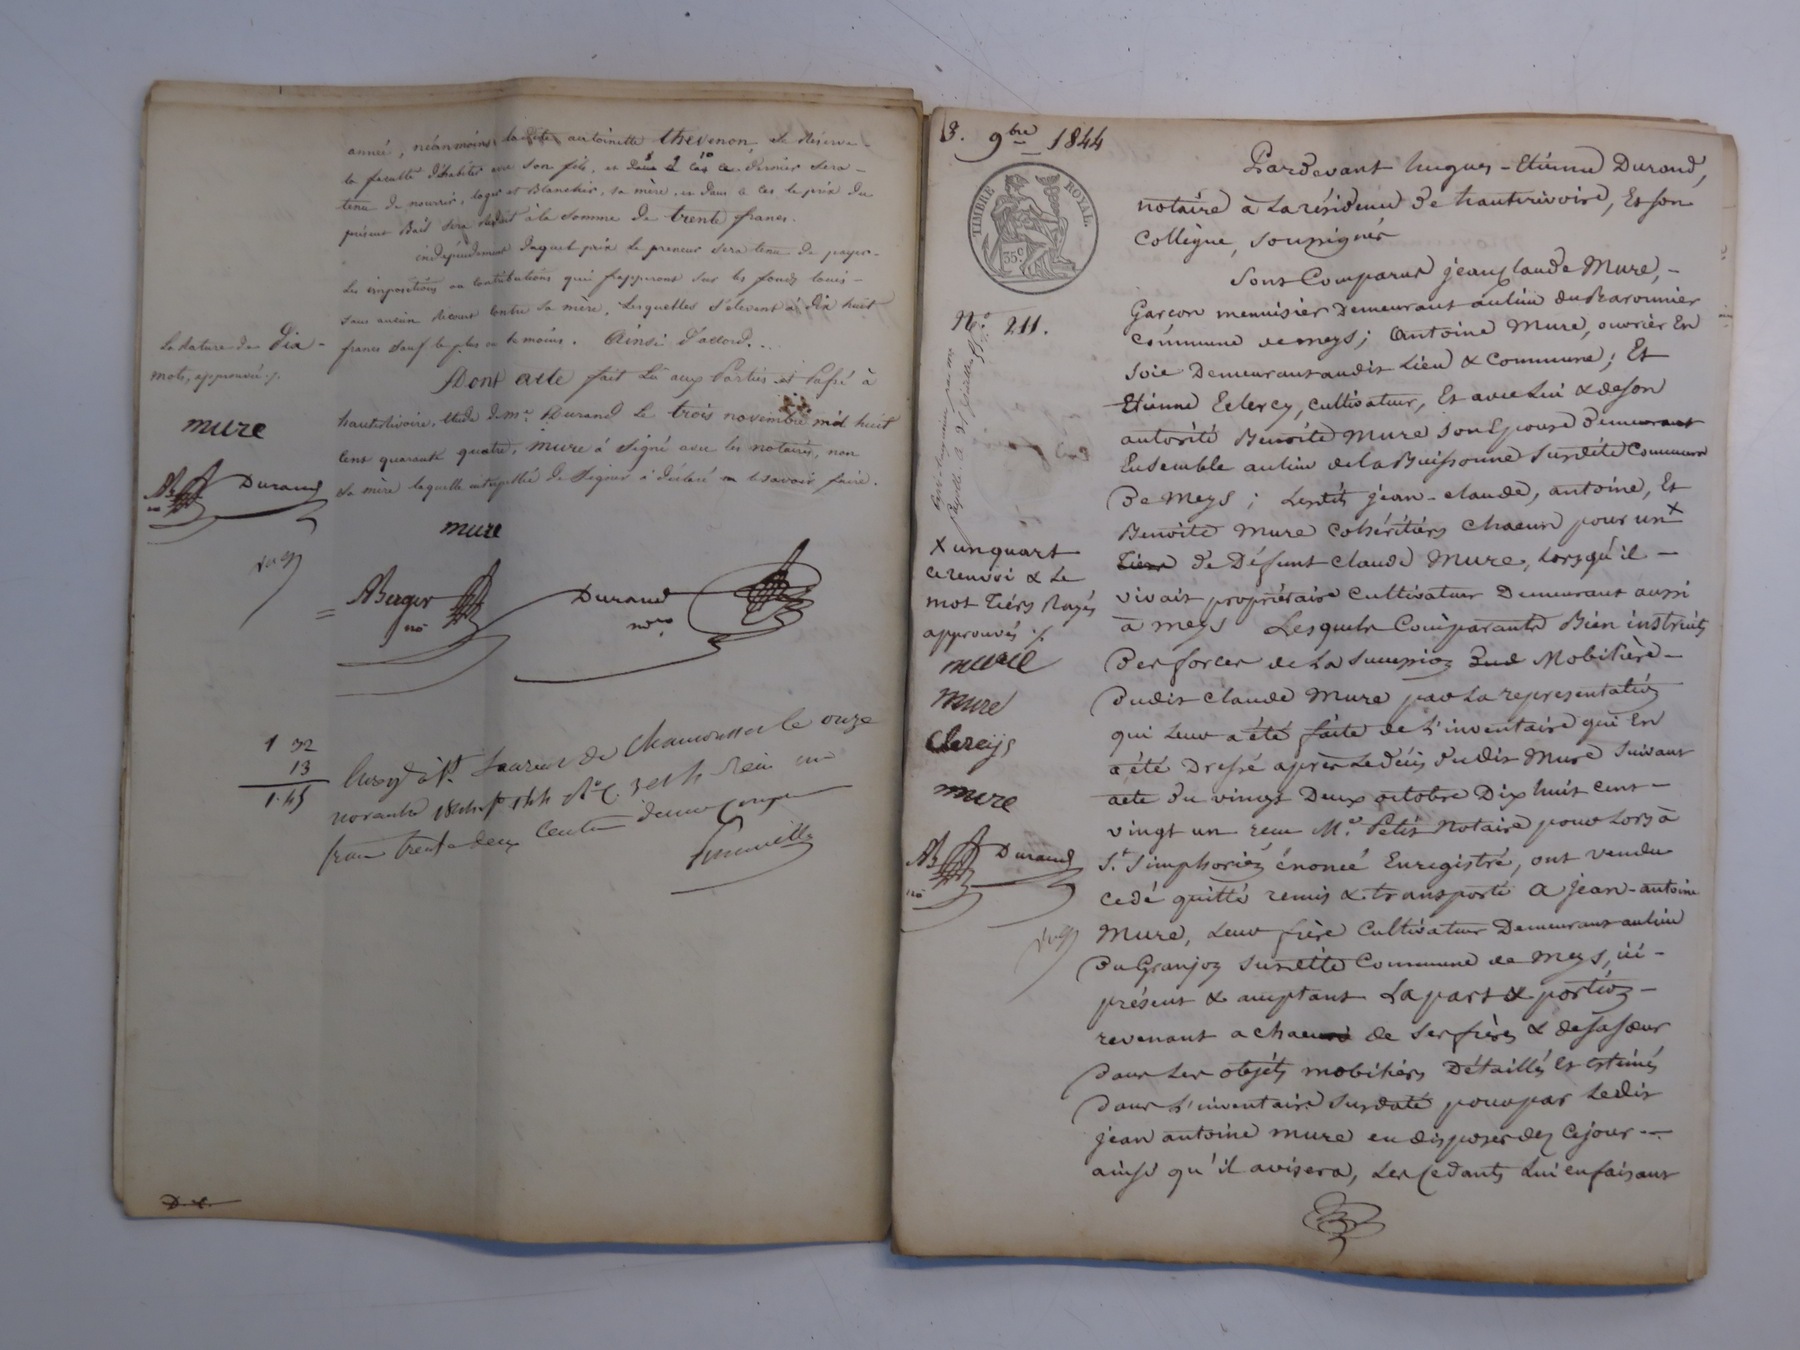 année, néanmoins ladite antoinette thevenon, se Réserve
la faculté d'habiter avec son fils, et dans ce cas ce dernier sera
tenu de nourrir, loger et Blanchir, sa mère, et dans ce cas le prix du
présent Bail sera réduit à la somme de trente francs.
indépendemment duquel prix le preneur sera tenu de payer
les impositions ou contributions qui frapperont sur les fonds loués
sans aucun recours contre sa mère, lesquelles s'élevent à dix huit
francs sauf le plus ou le moins. Ainsi d'accord.
Dont acte fait Lû aux Parties et Passé à
hauterivoire, étude de me. Durand le trois novembre mil huit
cent quarante quatre, mure à signé avec les notaires, non
sa mère laquelle interpellée de signer à déclaré ne le savoir faire.
la rature de Dix
mots, approuvée ./.
mure
AB
Durand
no
mure
ABerger
no
Durand
nore
1 32
13
1.45
Enregé à St Laurent de Chamousset le onze
novembre 1844 fo 144 Ro C. 3 et 4 Reçu un
franc trente deux Centimes décime compris
3. 9bre 1844
TIMBRE ROYAL
35 c
No. 211.
Pardevant hugues-Etienne Durand,
notaire à la résidence de hauterivoire, Et son
Collègue, soussignés
Sont Comparus jean claude Mure,
Garçon menuisier Demeurant au lieu du Maronnier
Commune de meys; Antoine Mure, ouvrier En
soie Demeurant audit Lieu & Commune; Et
Etienne Eclercy, cultivateur, Et avec Lui & de son
autorité Benoite Mure son Epouse Demeurant
Ensemble au lieu de la Buissonne susdite Commune
De Meys; Lesdits jean-claude, antoine, Et
Benoite Mure cohéritiers chacun pour un X
tiers de Défunt claude Mure, lorsqu'il
vivait propriétaire cultivateur Demeurant aussi
à meys Lesquels Comparants Bien instruits
Des forces de La succession Mobilière
Dudit claude Mure par La representation
qui Leur a été faite de L'inventaire qui En
a été Dressé après le décès dudit Mure suivant
acte du vingt Deux octobre Dix huit cent
vingt un reçu Me. Petit Notaire pour Lors à
St. Simphorien énoncé Enregistré, ont vendu
cedé quitté remis & transporté A jean-antoine
Mure, Leur frère Cultivateur Demeurant au lieu
Du Granjon susdite Commune de Meys, ici
présent & acceptant La part & portion
revenant a chacun de ses frères & de sa sœur
Dans Les objets mobiliers Détaillés Et estimés
Dans L'inventaire susdaté pour par Ledit
jean antoine mure en disposer dez ce jour
ainsi qu'il avisera, Les Cedants Lui en faisant
X un quart
ce renvoi & Le
mot tiers Rayés
approuvés ./.
mure
Mure
Clerciys
mure
AB
Durand
no